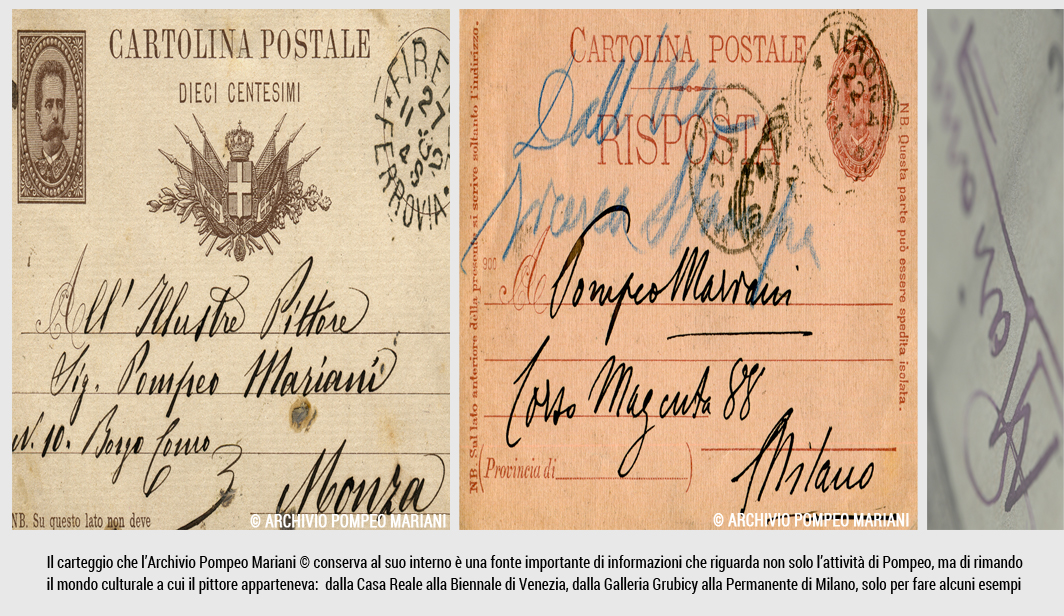 CARTOLINA POSTALE
DIECI CENTESIMI
FERROVIA
27
All' Illustre Pittore
Sig. Pompeo Mariani
N. 10. Borgo
Monza
NB. Su questo lato non deve
© ARCHIVIO POMPEO MARIANI
CARTOLINA POSTALE
RISPOSTA
VERONA
Dall'
A Pompeo Mariani
Corso Magenta 88
Milano
(Provincia di)
900
NB. Sul lato anteriore della presente si scrive soltanto l'indirizzo.
NB. Questa parte può essere spedita isolata.
© ARCHIVIO POMPEO MARIANI
Il carteggio che l'Archivio Pompeo Mariani © conserva al suo interno è una fonte importante di informazioni che riguarda non solo l'attività di Pompeo, ma di rimando
il mondo culturale a cui il pittore apparteneva: dalla Casa Reale alla Biennale di Venezia, dalla Galleria Grubicy alla Permanente di Milano, solo per fare alcuni esempi